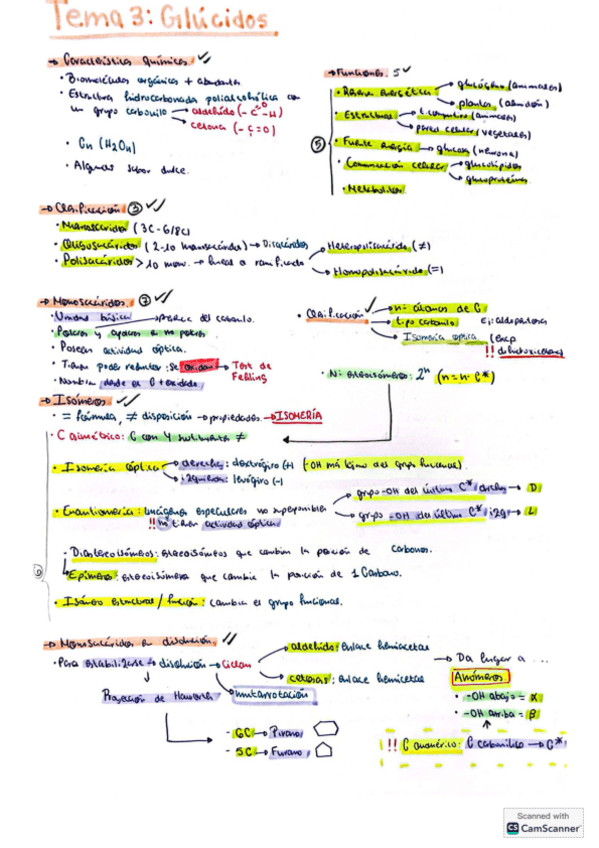 Tema 3: Glúcidos
→ Características Químicas
• Biomoléculas orgánicas + abundantes
• Estructura hidrocarbonada polialcohólica con
un grupo carbonilo → aldehído (-C=O-H)
→ cetona (-C=O)
• Cn (H2On)
• Algunos sabor dulce.
→ Funciones. 5
• Reserva energética → glucógeno (animales)
→ plantas (almidón)
• Estructural → (animales)
→ pared celular (vegetales)
⑤ • Fuente energía → glucosa (neurona)
• Comunicación celular → glucolípidos
→ glucoproteínas
• Metabolitos
→ Clasificación ③
• Monosacáridos (3C-6/8C)
• Oligosacáridos (2-10 monosacáridos) → Disacáridos
• Polisacáridos > 10 mon. → lineal o ramificado
→ Heteropolisacárido (≠)
→ Homopolisacárido (=)
→ Monosacáridos. ⑦
• Unidad básica → del carbonilo.
• Polares y en no polares
• Poseen actividad óptica.
• Tienen poder reductor: se oxidan → Test de
Fehling
• Nombra desde el C + oxidado
• Clasificación → nº átomos de C
→ tipo carbonilo Ej: aldopentosa
→ Isomería óptica
!!
• Nº estereoisómeros: 2ⁿ (n = nº C*)
→ Isómeros
• = fórmula, ≠ disposición → propiedades → ISOMERÍA
• C asimétrico: C con 4 sustituyentes ≠
• Isomería óptica → derecha: dextrógiro (+)
→ izquierda: levógiro (-)
(-OH más lejano del grupo funcional)
• Enantiomería: Imágenes especulares no superponibles
!! tienen actividad óptica
→ grupo -OH del último C* dcha → D
→ grupo -OH del último C* izq → L
- Diastereoisómeros: estereoisómeros que cambian la posición de carbonos.
↳ Epímeros: estereoisómeros que cambia la posición de 1 Carbono.
• Isómero estructural / función: cambia el grupo funcional.
→ Monosacáridos en disolución.
• Para estabilizarse → disolución → Ciclan
→ aldehído: enlace hemiacetal
→ cetosas: enlace hemicetal
→ Da lugar a ...
Anómeros.
• -OH abajo = α
• -OH arriba = β
!! C anomérico: C carbonílico → C*
Proyección de Haworth
mutarrotación
- 6C → Pirano
- 5C → Furano
Scanned with
CS CamScanner